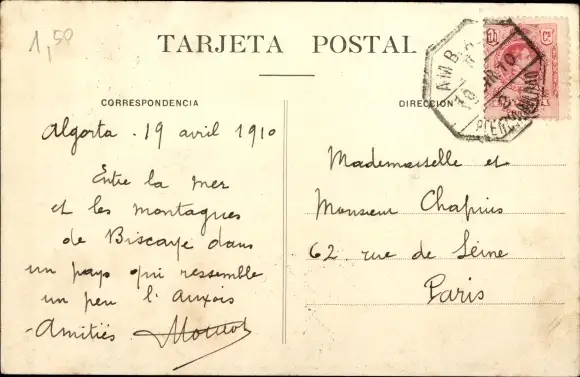 1,50
TARJETA POSTAL
CORRESPONDENCIA
DIRECCION
Algorta . 19 avril 1910
Entre la mer
et les montagnes
de Biscaye dans
un pays qui ressemble
un peu à l'Auxois
- Amitiés
Mademoiselle et
Monsieur Chapuis
62. rue de Seine
Paris
AMB.
10